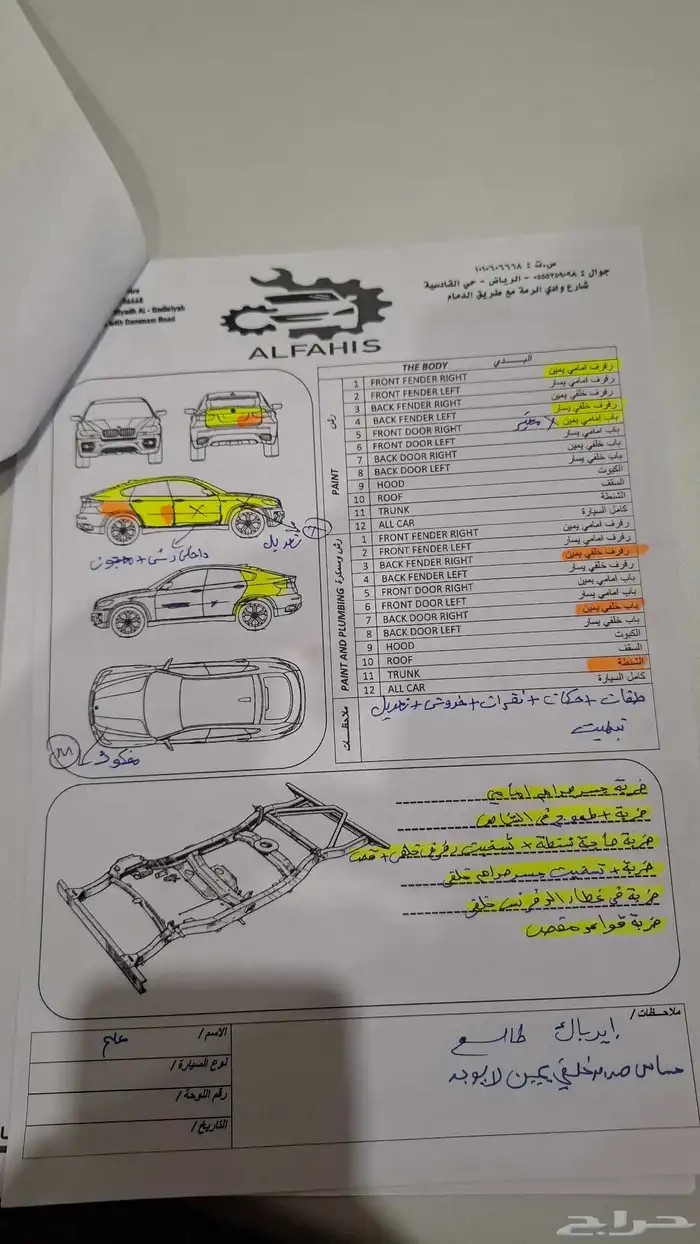 س.ت : ١٠١٠٦٠٦٦٦٨
جوال : ٠٥٥٥٢٥٩٠٩٨ - الرياض - حي القادسية
شارع وادي الرمة مع طريق الدمام
Riyadh AL - Qadisiyah
with Dammam Road
ALFAHIS
THE BODY البـــدي
PAINT رش
1 FRONT FENDER RIGHT رفرف امامي يمين
2 FRONT FENDER LEFT رفرف امامي يسار
3 BACK FENDER RIGHT رفرف خلفي يمين
4 BACK FENDER LEFT رفرف خلفي يسار
5 FRONT DOOR RIGHT باب امامي يمين
6 FRONT DOOR LEFT باب امامي يسار
7 BACK DOOR RIGHT باب خلفي يمين
8 BACK DOOR LEFT باب خلفي يسار
9 HOOD الكبوت
10 ROOF السقف
11 TRUNK الشنطة
12 ALL CAR كامل السيارة
PAINT AND PLUMBING رش وسمكرة
1 FRONT FENDER RIGHT رفرف امامي يمين
2 FRONT FENDER LEFT رفرف امامي يسار
3 BACK FENDER RIGHT رفرف خلفي يمين
4 BACK FENDER LEFT رفرف خلفي يسار
5 FRONT DOOR RIGHT باب امامي يمين
6 FRONT DOOR LEFT باب امامي يسار
7 BACK DOOR RIGHT باب خلفي يمين
8 BACK DOOR LEFT باب خلفي يسار
9 HOOD الكبوت
10 ROOF السقف
11 TRUNK الشنطة
12 ALL CAR كامل السيارة
ملاحظات
طقات + حكات + نقرات + خدوش + تعديل
تعديل
داخلي رش + معجون
مفكوك
ضربة جسر صدام امامي
ضربة + طعوج في الشاص
ضربة + تسفيت جسر صدام خلفي
ملاحظات /
إيرباك طالع
حساس صدام خلفي يمين لا يوجد
الاسم /
نوع السيارة /
رقم اللوحة /
التاريخ /
حراج